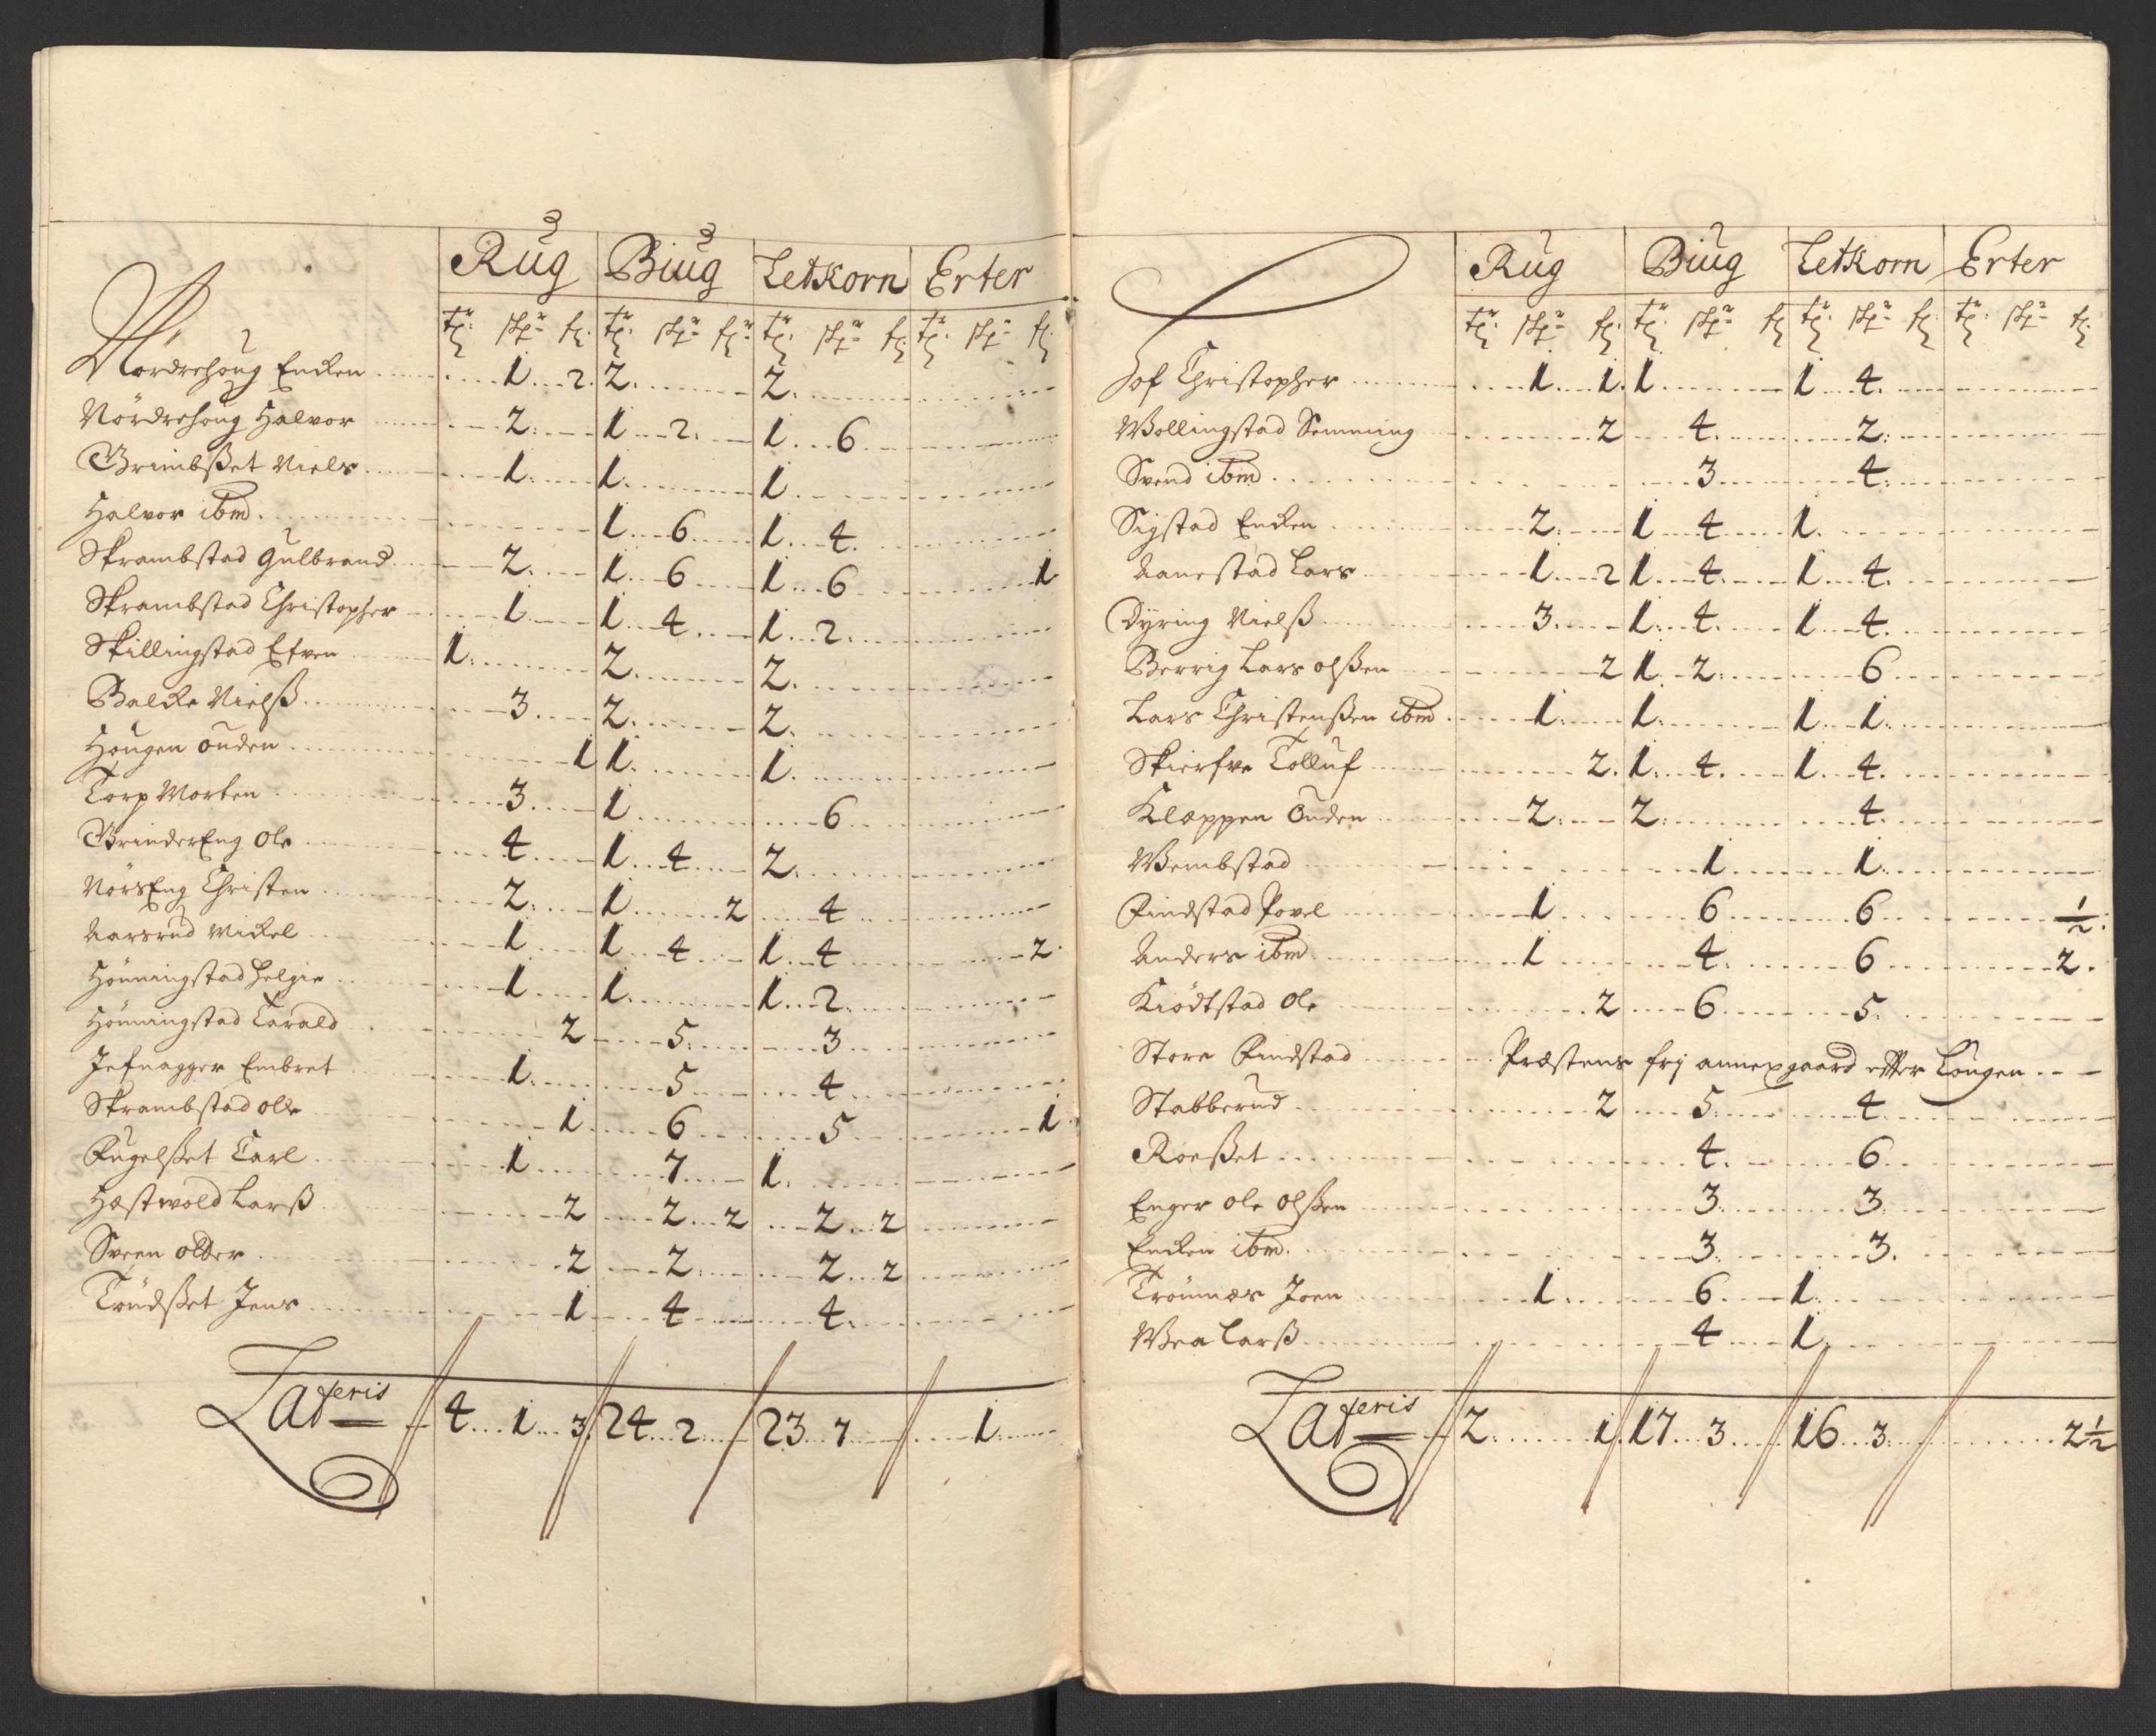 Rug Biug Letkorn Erter
tr: skpr fr: tr: skpr fr: tr: skpr fr: tr: skpr fr:
Nordrehoug Encken 1 2. 2. 2.
Nordrehoug Halvor 2. 1 2. 1 6
Grimbßet Niels 1. 1. 1
Halvor ibm 1 6 1. 4.
Skrambstad Gulbrand 2. 1. 6 1 6 1
Skrambstad Christopher 1 1 4 1 2.
Skillingstad Efven 1. 2. 2.
Balcke Nielß 3 2. 2.
Hougen ouden 1 1. 1.
Torp Morten 3 1. 6
GrinderEng Ole 4 1 4 2.
NorsEng Christen 2. 1 2 4
Aarsrud Mickel 1 1 4 1 4 2.
Hönningstad Helgie 1 1. 1 2.
Hönningstad Tarald 2 5. 3
Jefnagger Embret 1. 5 4
Skrambstad olle 1 6 5 1
Fugelßet Carl 1 7 1.
Hæstwold Larß 2 2 2 2 2
Sveen 2 2 2 2
Trudßet Jens 1 4 4.
Lateris 4 1 3. 24 2. 23 7 1.
Rug Biug Letkorn Erter
tr: skpr fr: tr: skpr fr tr: skpr fr: tr: skpr fr:
Hof Christopher 1 1. 1 1 4.
Wollingstad Semming 2 4. 2.
Svend ibm 3 4.
Sigstad Encken 2. 1 4 1.
Aanestad Lars 1 2 1 4 1 4.
Dyring Nielß 3. 1. 4. 1 4.
Berrig Lars olßen 2 1. 2. 6
Lars Christenßen ibm 1. 1. 1 1.
Skierfve Tolluf 2. 1. 4. 1. 4.
Kloppen Ouden 2. 2. 4.
Wembstad 1 1.
Findstad Povel 1 6 6 ½.
Anders ibm 1 4. 6 2.
Kiödtstad Ole 2 6 5.
Store Findstad Præstens frj annexgaard effter Lougen
Stabberud 2 5. 4
Roeßet 4. 6
Enger Ole olßen 3. 3.
Encken ibm. 3. 3.
Trönnæs Joen 1. 6 1.
Wea Larß 4 1.
Lateris 2. 1. 17 3 16 3. 2½